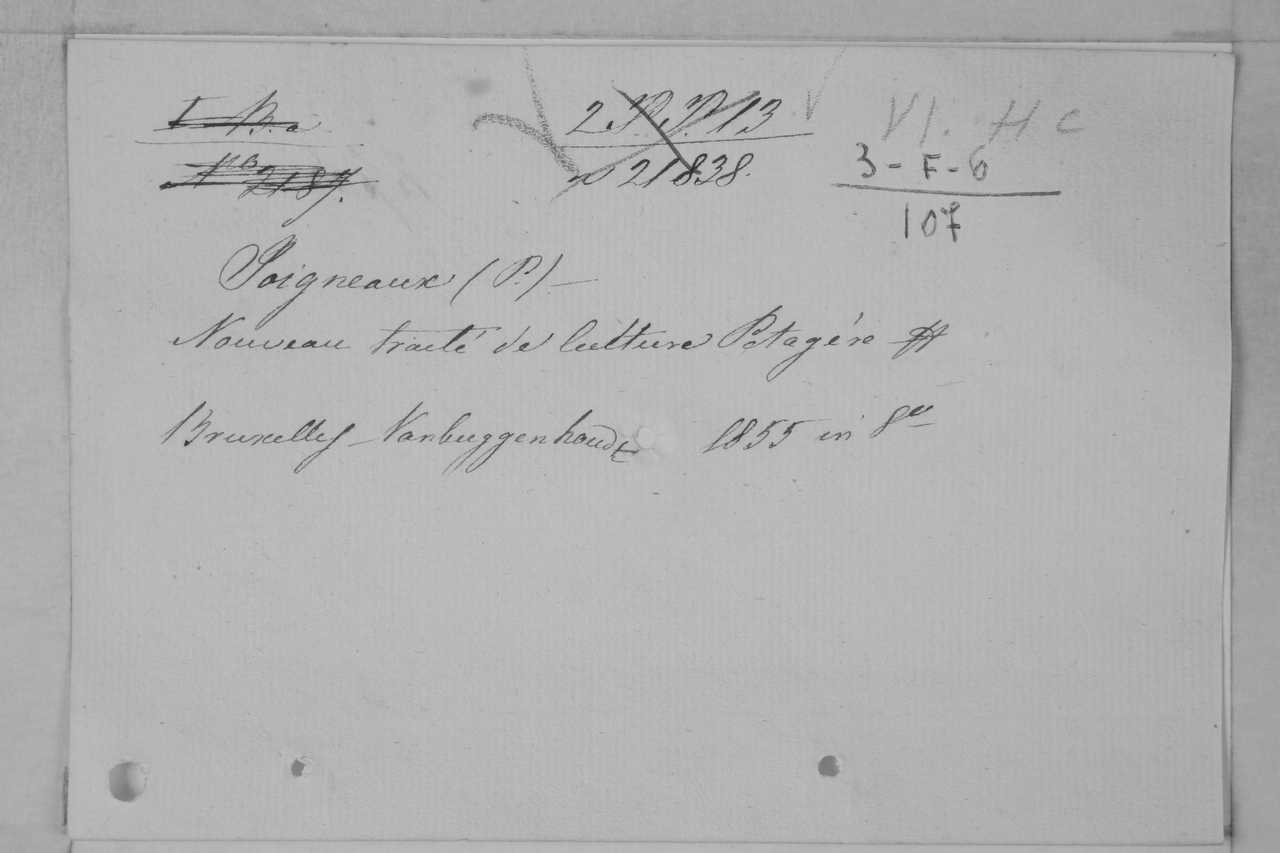 I B.a
2 P. P. 13
VI. H c
n° 2187.
n° 21838.
3 - F - 6
107
Joigneaux (P.) –
Nouveau traité de Culture Potagère
Bruxelles Vanbuggenhoudt 1855 in 8°